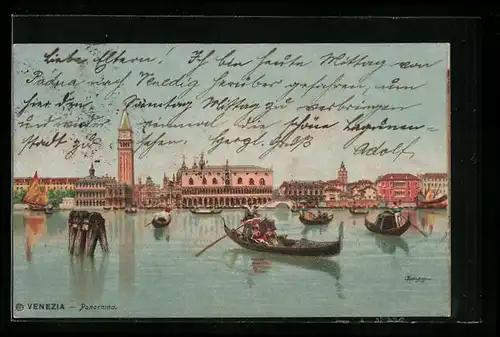 Liebe Eltern! Ich bin heute Mittag von
Padua nach Venedig herüber gefahren, um
hier den Samstag Mittag zu verbringen
und einmal die schöne Lagunen-
stadt zu sehen. Herzl. Gruß
Adolf.
VENEZIA – Panorama.